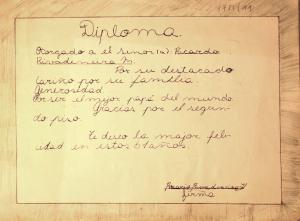 Diploma.
Otorgado a el señor(a): Ricardo
Rivadeneira M.
Por su destacado
cariño por su familia.
Generosidad
Por ser el mejor papá del mundo.
Gracias por el segun-
do piso.
te deseo la mejor feli-
cidad en estos 61 años.
firma